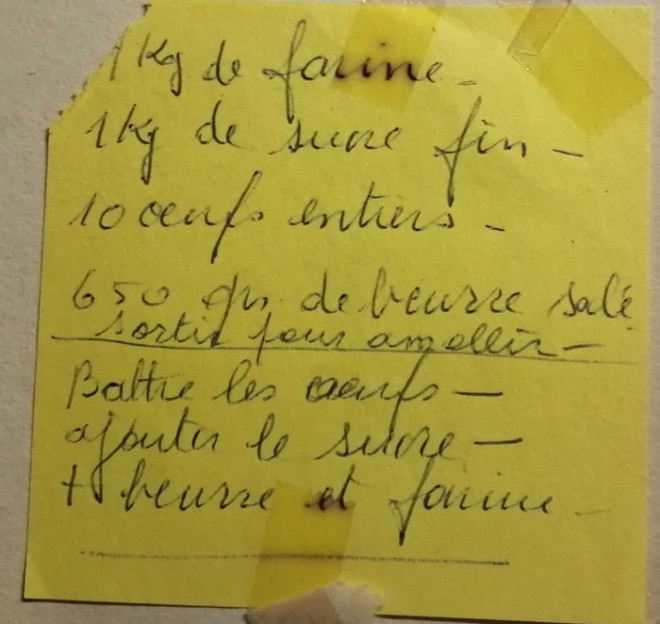 1 Kg de farine -
1 kg de sucre fin -
10 œufs entiers -
650 grs de beurre salé
sortir pour amollir -
Battre les œufs -
ajouter le sucre -
+ beurre et farine -